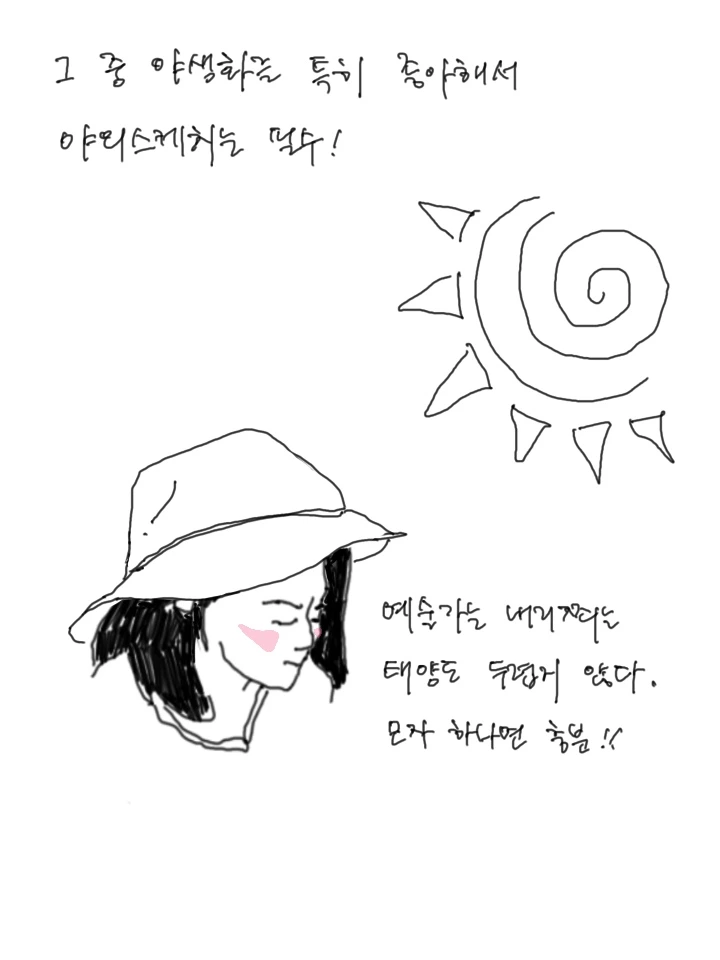 그 중 야생화를 특히 좋아해서
야외스케치는 필수!
예술가는 내리쬐는
태양도 두렵지 않다.
모자 하나면 충분!!